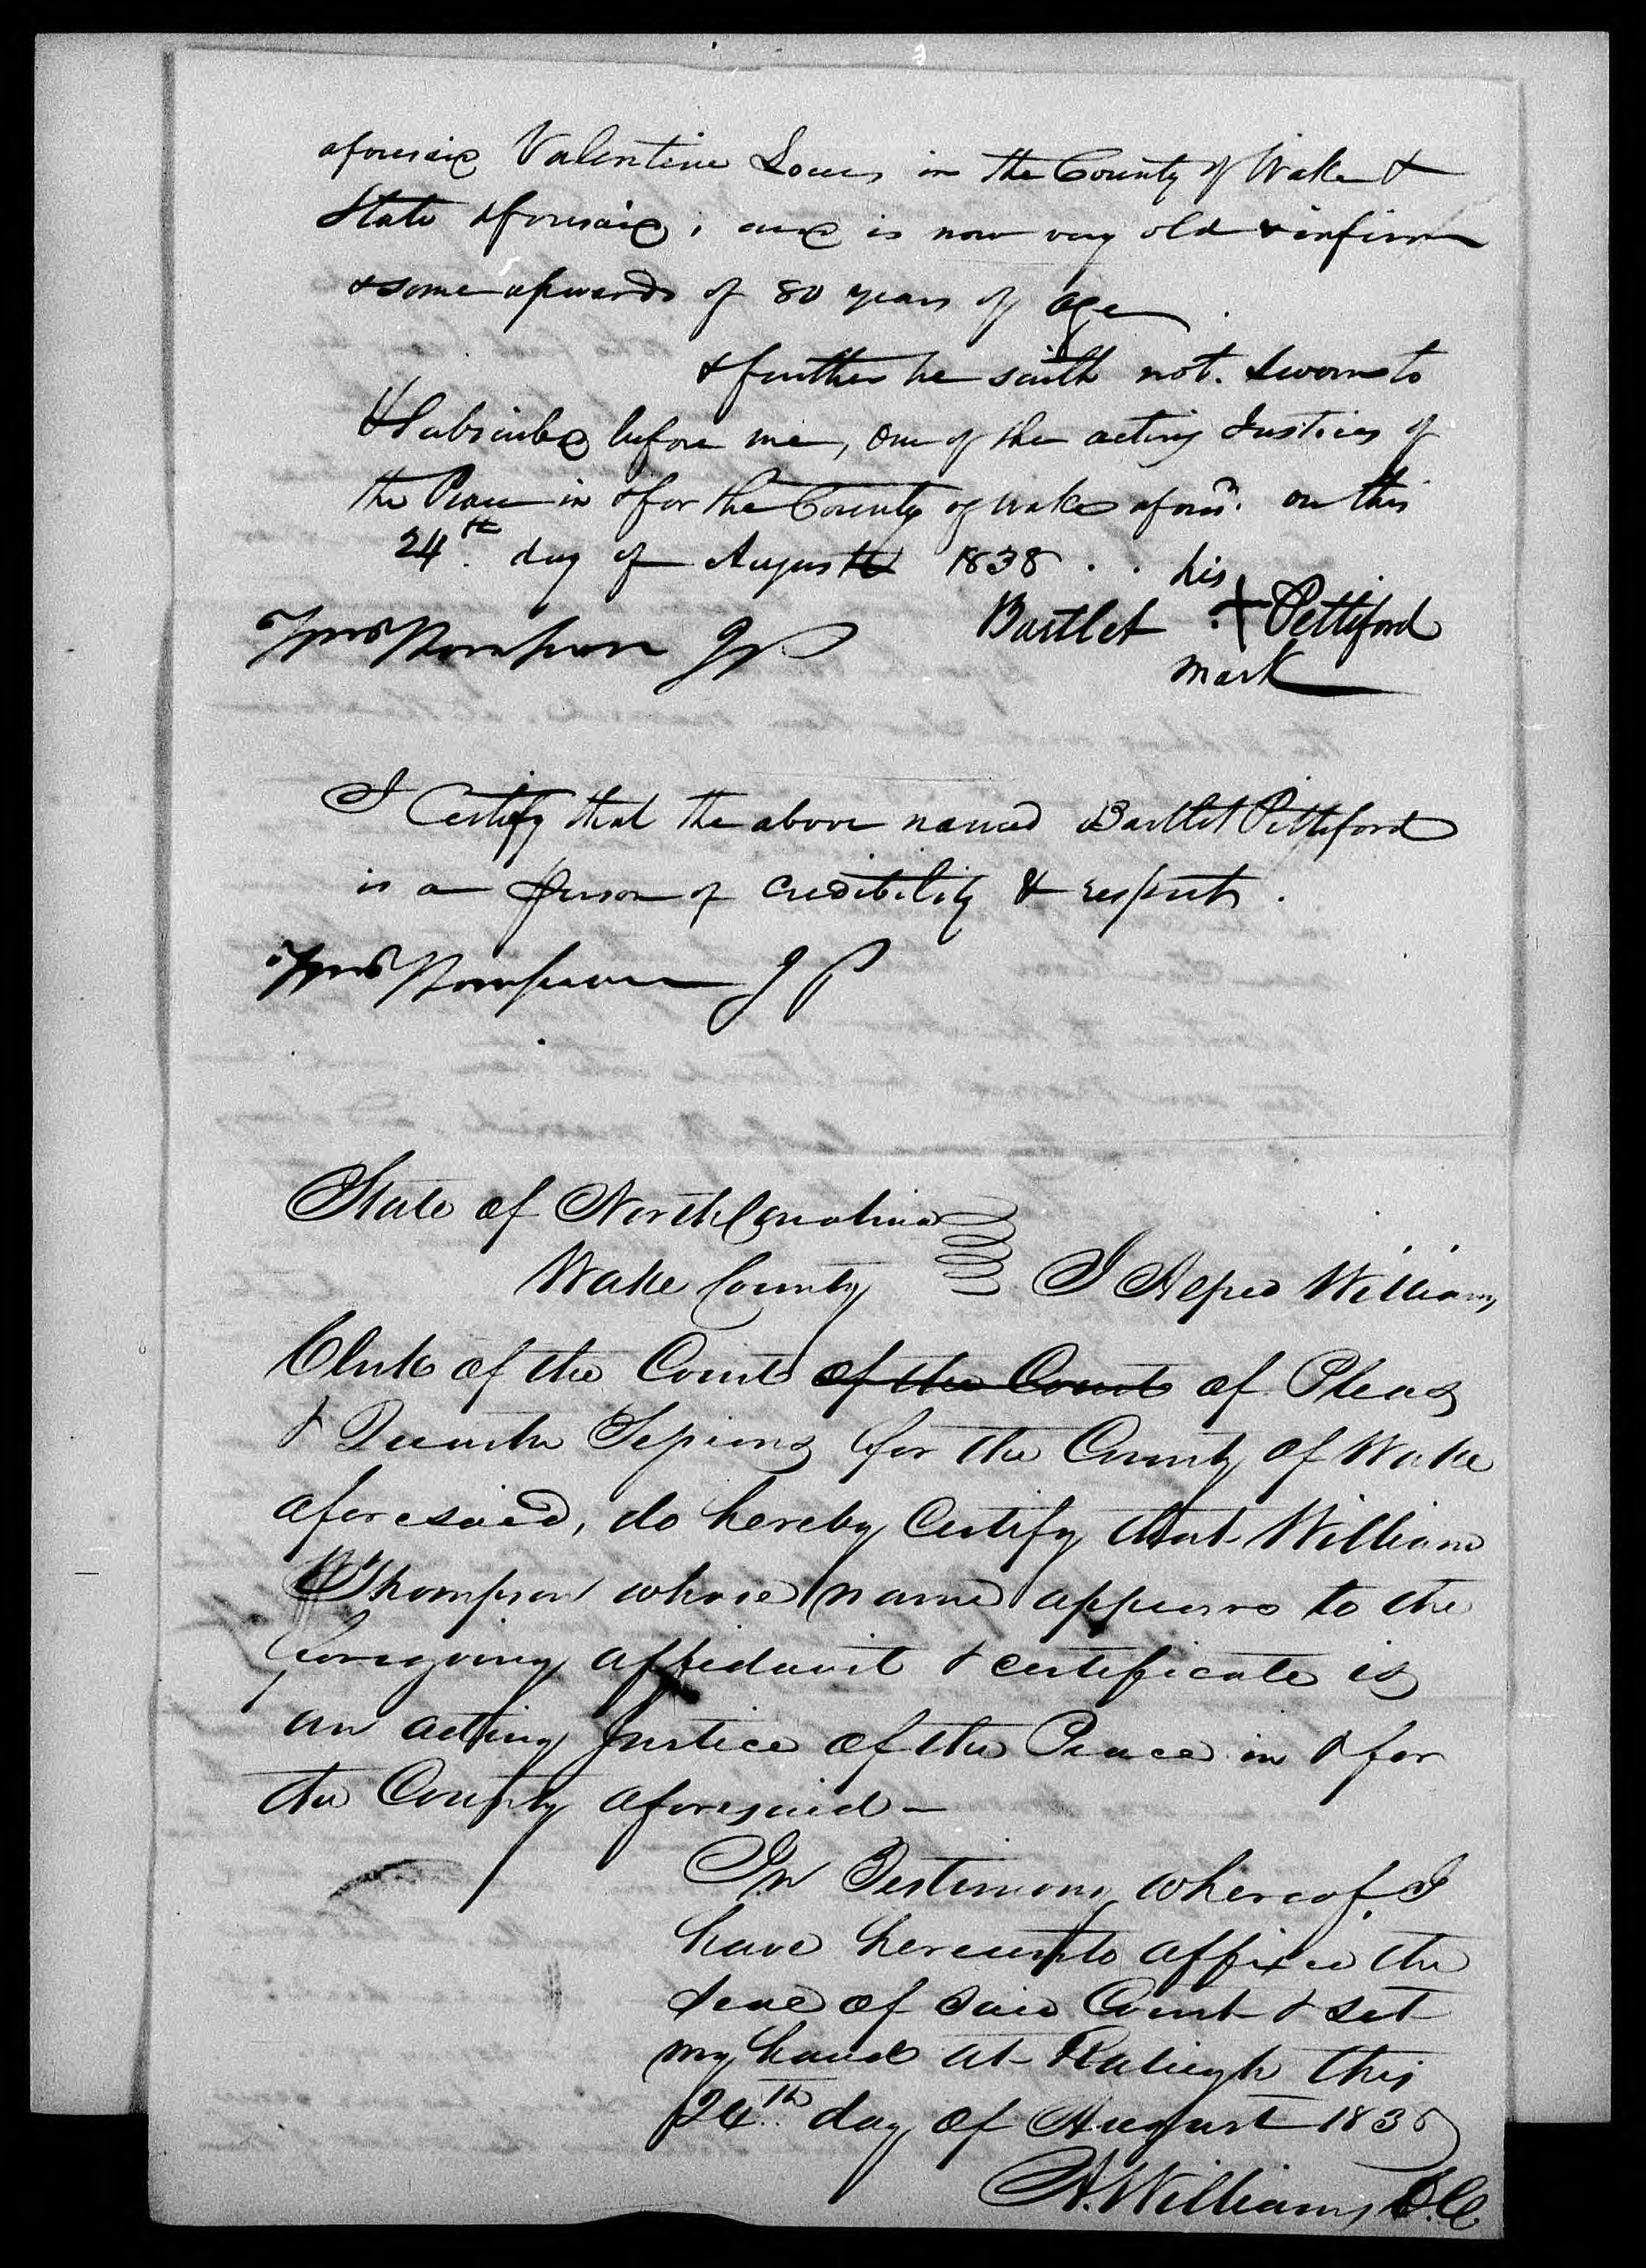 aforesaid Valentine Locus in the County of Wake &
State aforesaid, and is now very old & infirm
& some upwards of 80 years of age
& further he saith not. Sworn to
& Subscribed before me, one of the acting Justices of
the Peace in & for the County of Wake afors^d. on this
24th. day of August 1838 . . his
Bartlet + Pettiford
mark
Wm Thompson JP
I Certify that the above named Bartlet Pettiford
is a person of credibility & respect.
Wm Thompson JP
State of North Carolina
Wake County I Alfred Williams
Clerk of the Court of the Court of Pleas
& Quarter Sessions for the County of Wake
aforesaid, do hereby Certify that William
Thompson whose name appears to the
foregoing affidavit & certificate is
an acting Justice of the Peace in & for
the County aforesaid —
In Testimony whereof I
have hereunto affixed the
Seal of said Court & set
my hand at Raleigh this
24th day of August 1838
A. Williams